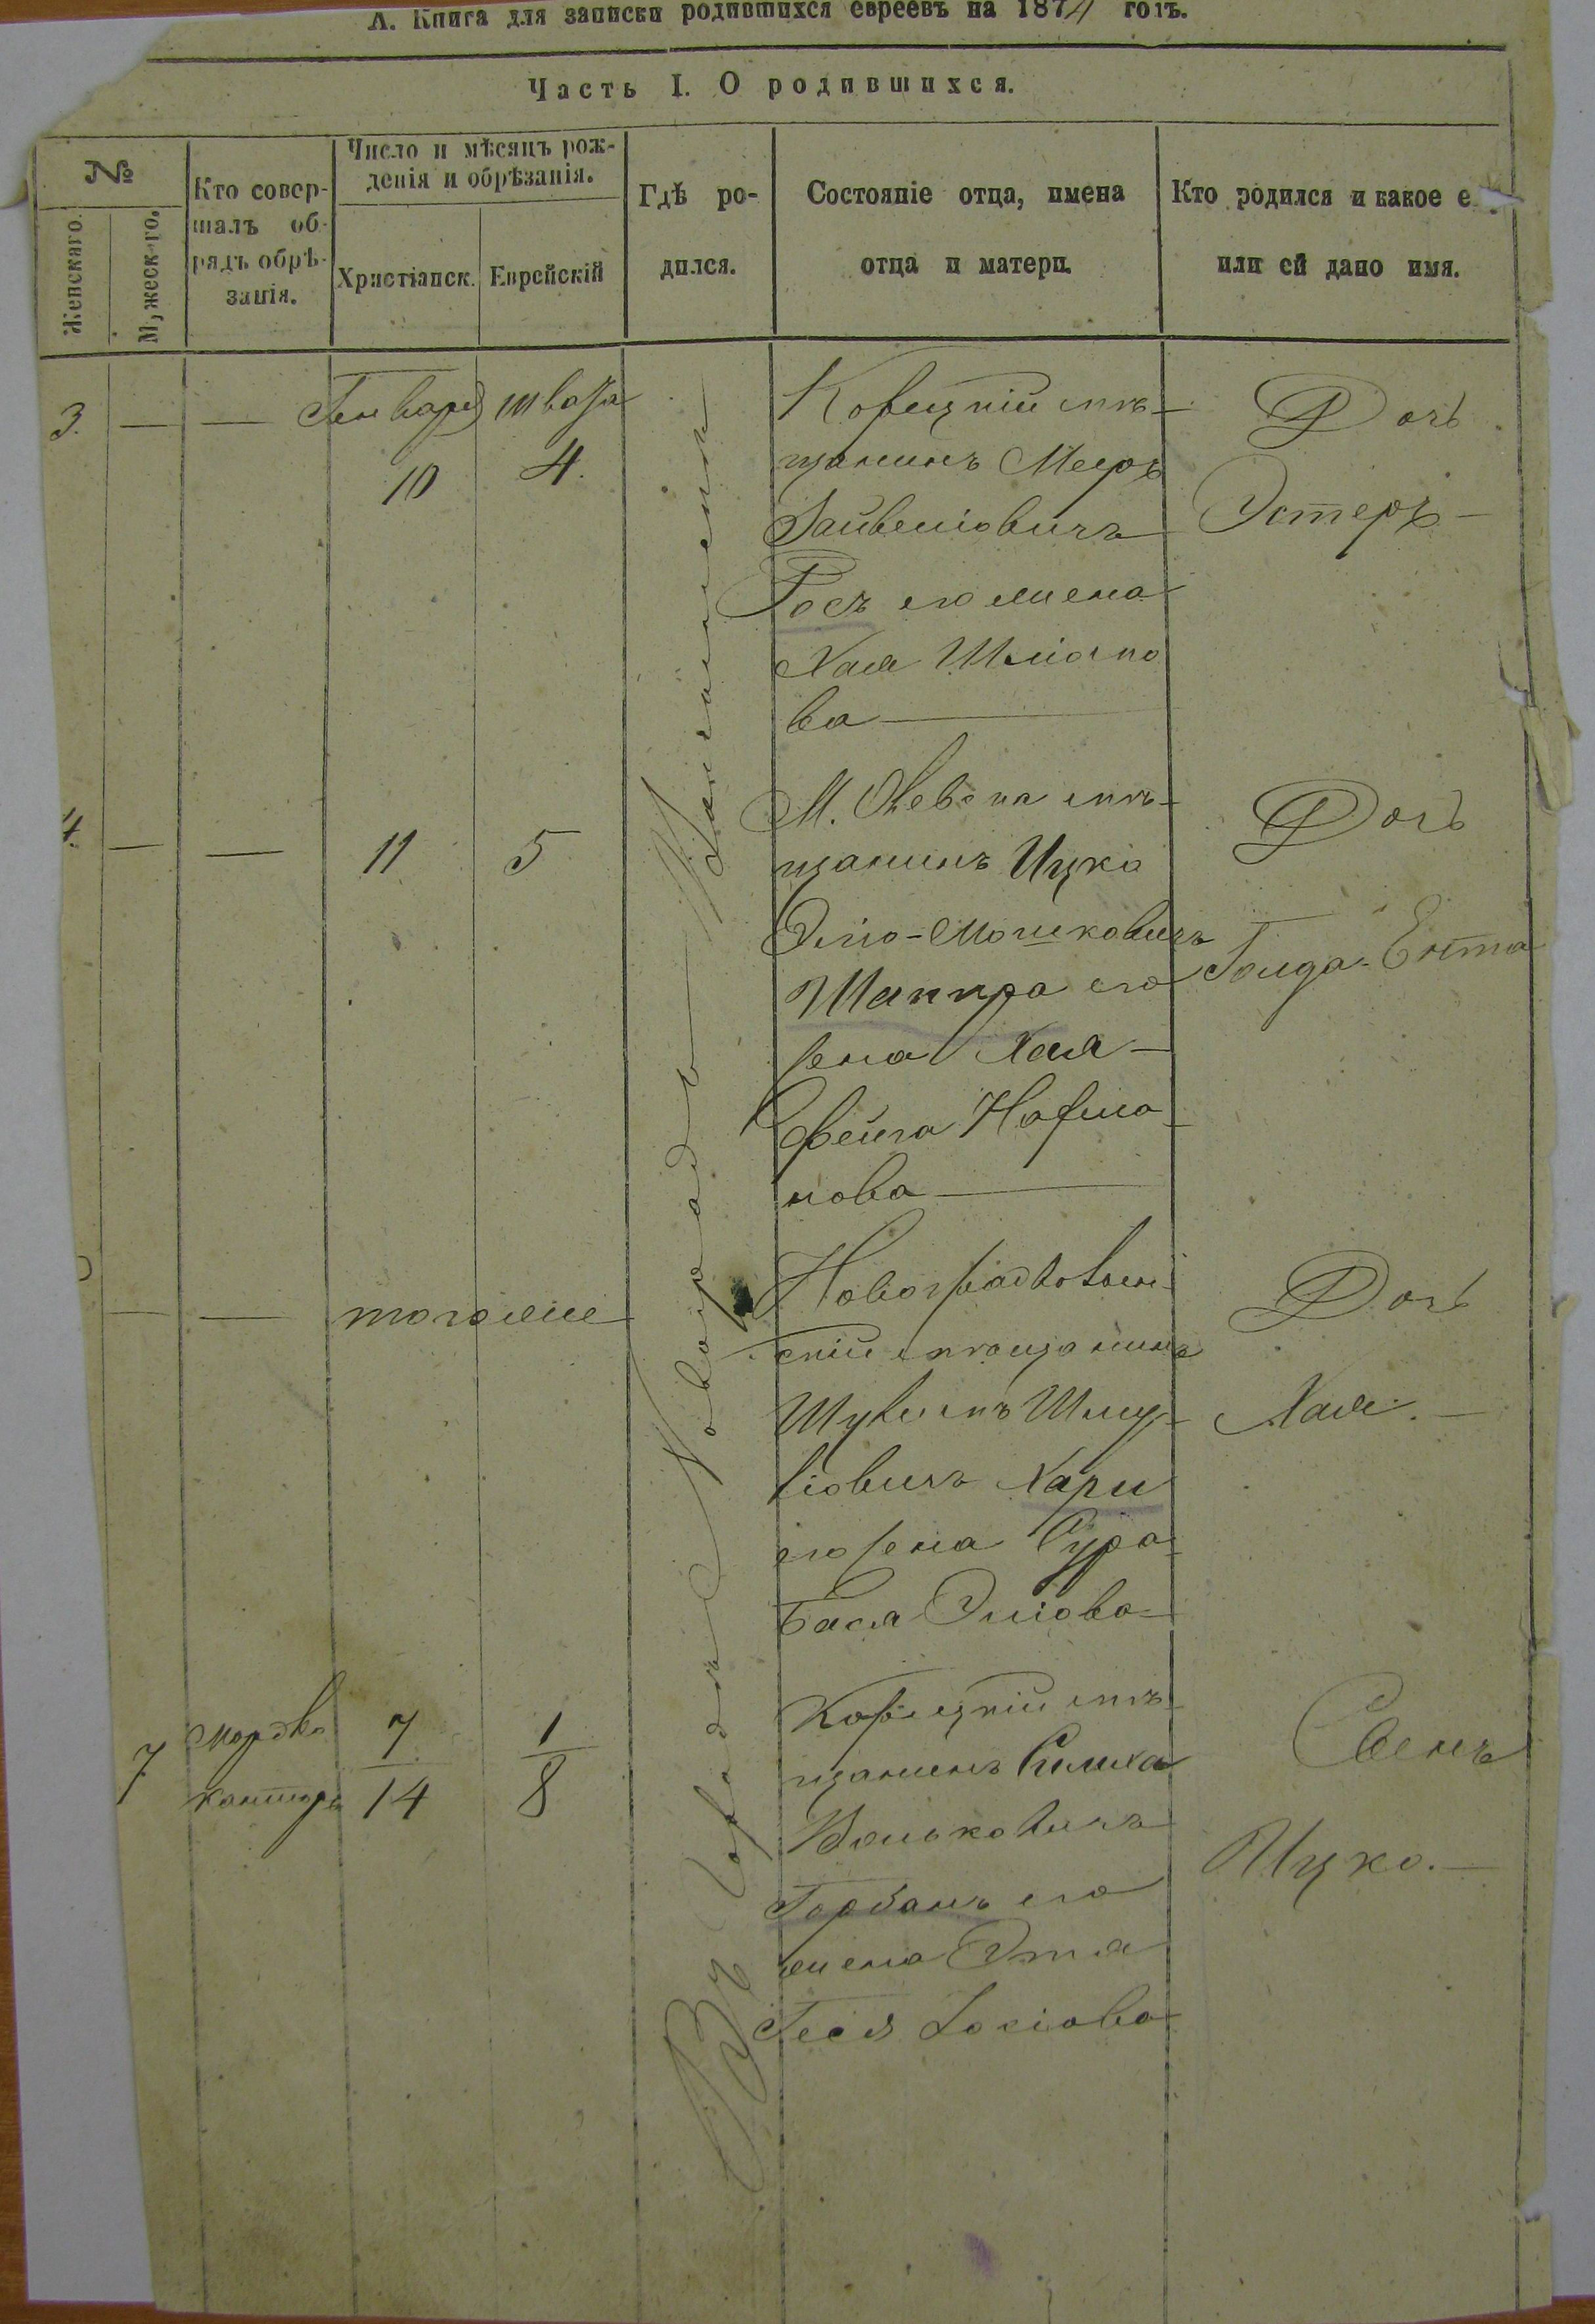 А. Книга для записки родившихся евреевъ на 1874 годъ.
Часть I. О родившихся.
№
Женскаго.
Мужеск-го.
Кто совер-
шалъ об-
рядъ обрѣ-
занія.
Число и мѣсяцъ рож-
денія и обрѣзанія.
Христіанск.
Еврейскій
Гдѣ ро-
дился.
Состояніе отца, имена
отца и матери.
Кто родился и какое е
или ей дано имя.
Въ городѣ Новоградъ-Волынскѣ
3.
—
—
Генваря
10
шва
4.
Корецкій мѣ-
щанинъ Мееръ
Зайвеліовичъ
Росъ его жена
Хая
ва
Дочь
Эстеръ
4.
—
—
11
5
М.
щанинъ Ицко
Эліо-Мошковичъ
Шапира его
жена Хая
Фейга Нафма-
нова
Дочь
Голда-Ента
—
—
того же
Новоградволын-
скій мѣщанинъ
Шулимъ Шму-
ліовичъ
его жена Сура
Бася Эліова
Дочь
Хая.
7
Мордко
Канторъ
7
14
1
8
Корецкій мѣ-
щанинъ Симха
Волковичъ
Горбанъ его
жена Этя
Геся Іосіова
Сынъ
Ицко.